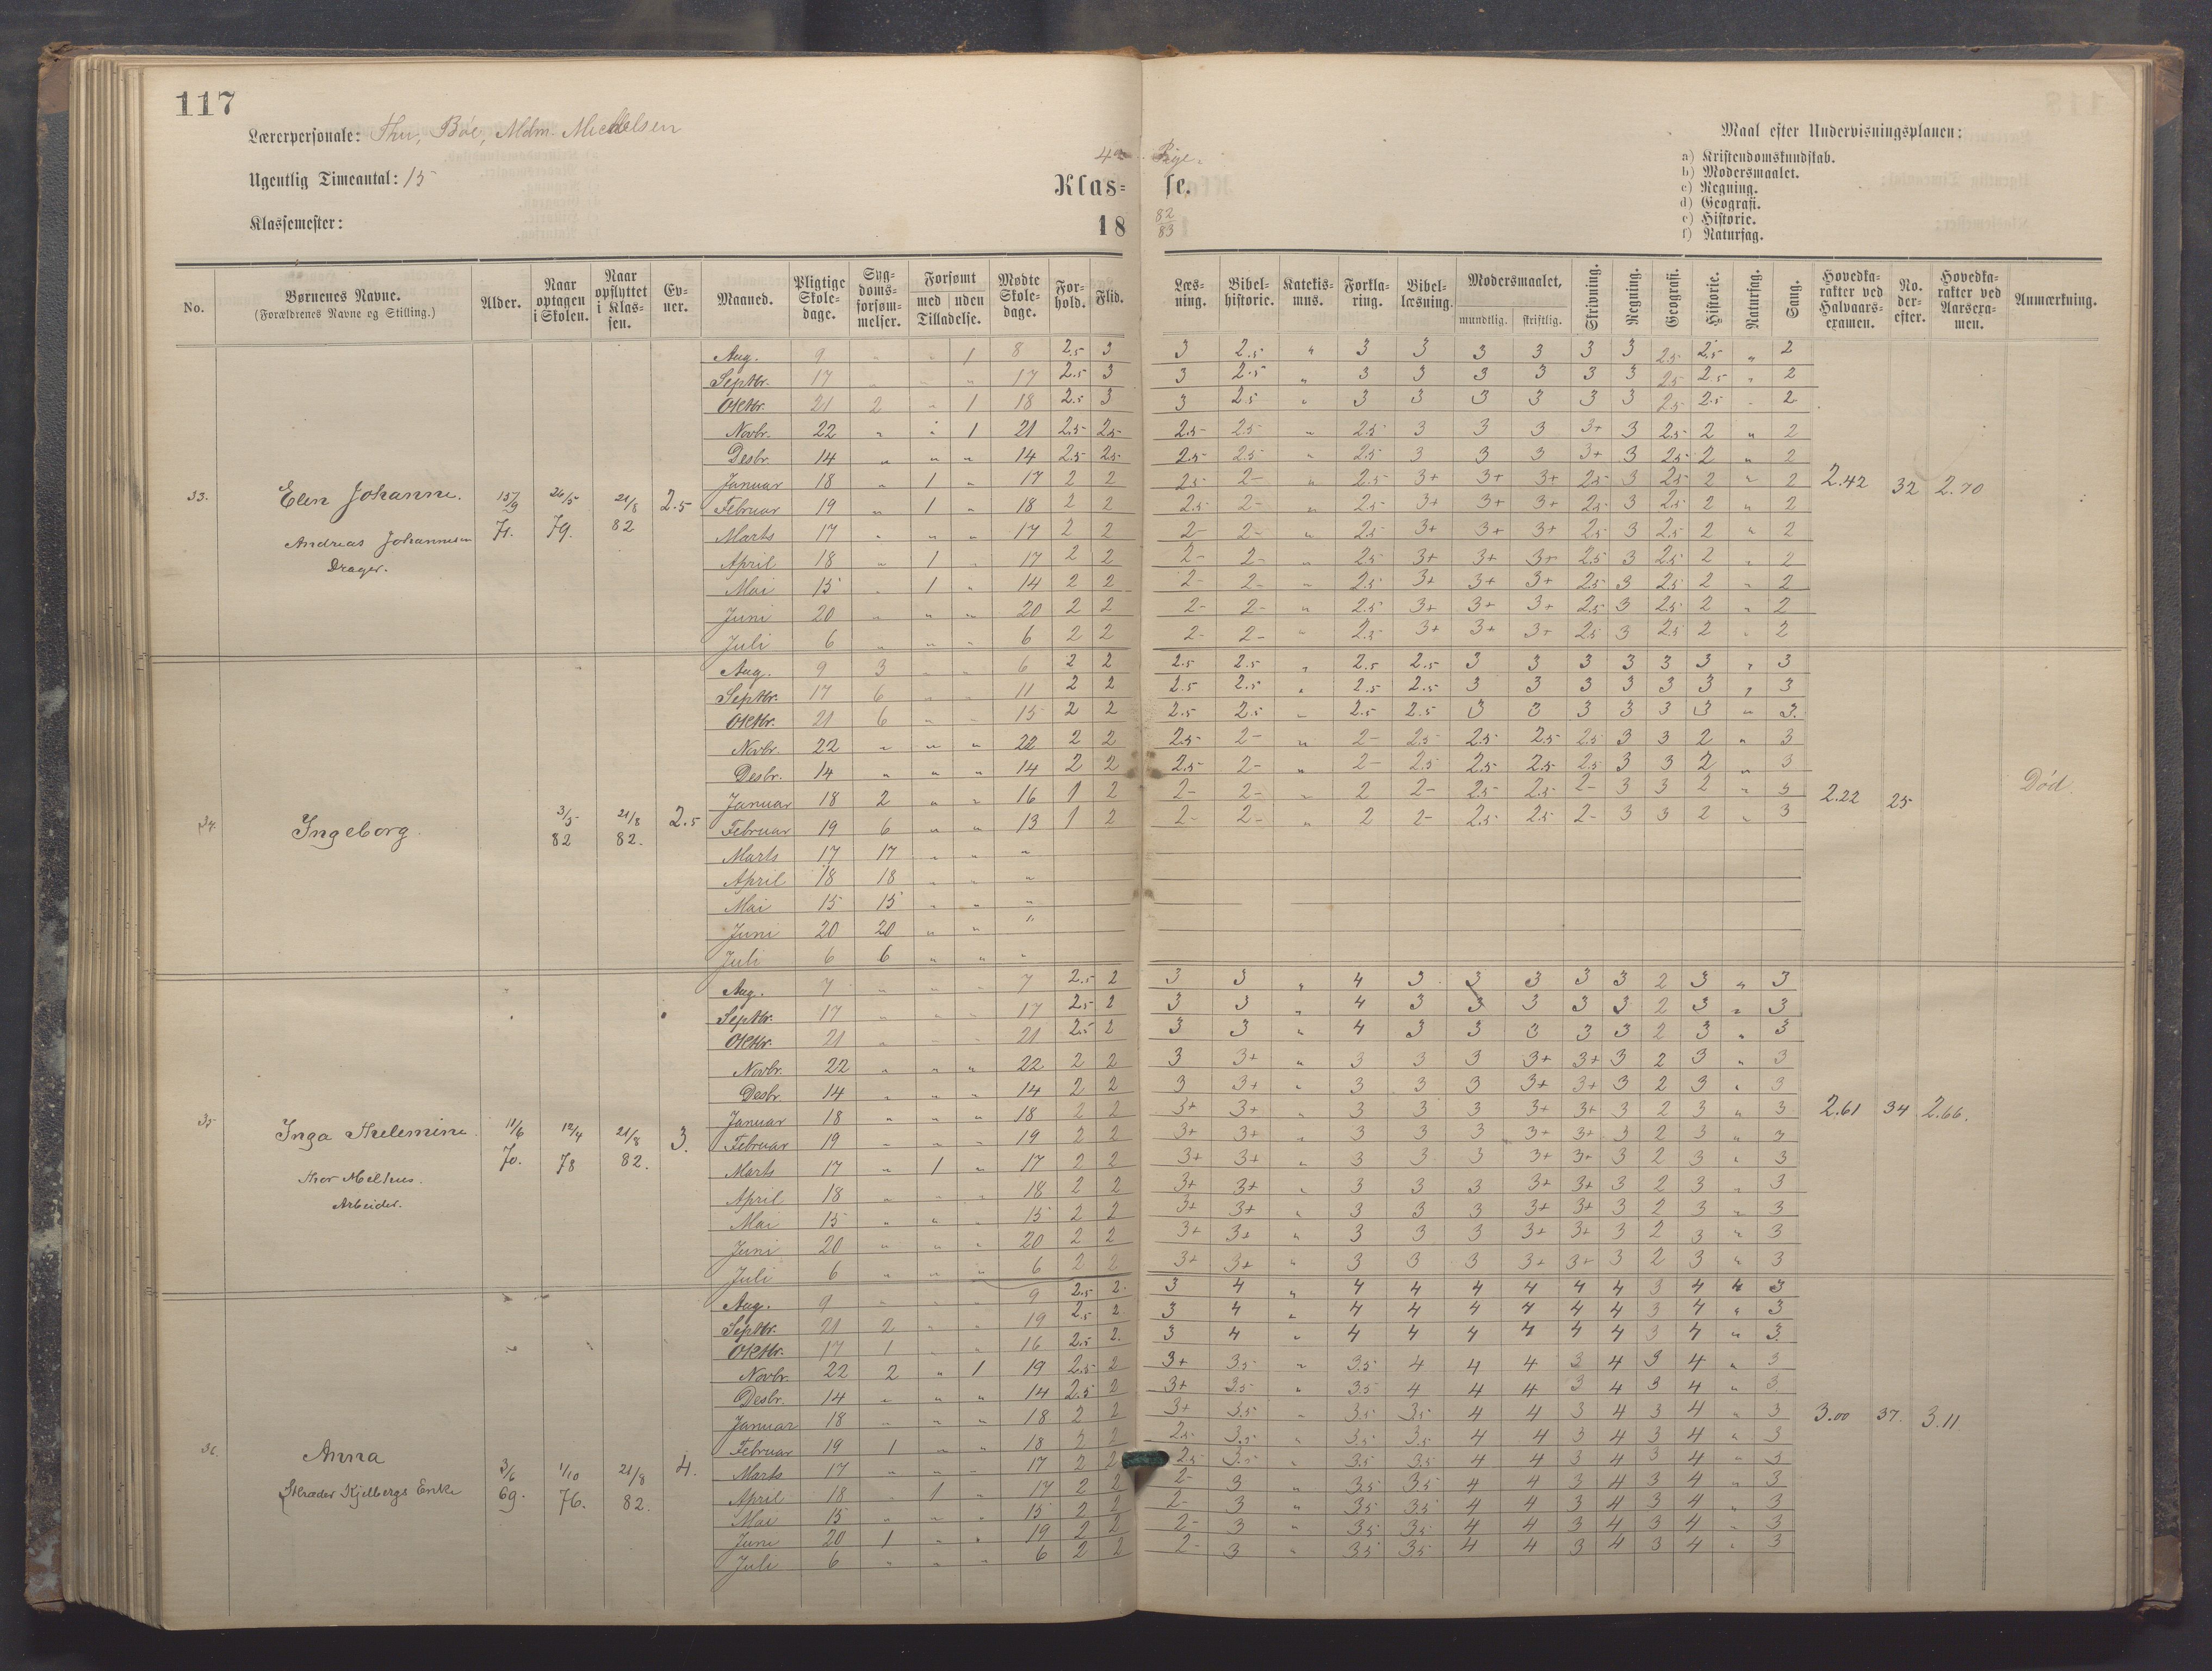 117
Lærerpersonale: Thu, Bøe, Mdm. Michelsen
Ugentlig Timeantal: 15
Klassemester:
4de Pige.
Klas= se.
18 82/83
Maal efter Undervisningsplanen:
a) Kristendomskundskab.
b) Modersmaalet.
c) Regning.
d) Geografi.
e) Historie.
f) Naturfag.
No. Børnenes Navne. (Forældrenes Navne og Stilling.) Alder. Naar optagen i Skolen. Naar opflyttet i Klassen. Evner. Maaned. Pligtige Skoledage. Sygdomsforsømmelser. Forsømt med uden Tilladelse. Mødte Skoledage. Forhold. Flid. Læsning. Bibelhistorie. Katekismus. Forklaring. Bibellæsning. Modersmaalet, mundtlig. skriftlig. Skrivning. Regning. Geografi. Historie. Naturfag. Sang. Hovedkarakter ved Halvaarsexamen. No. derefter. Hovedkarakter ved Aarsexamen. Anmærkning.
33. Elen Johanne. Andreas Johannesen Drager. 15/9 71. 26/5 79. 21/8 82 2.5 2.42 32 2.70
Aug. 9 " " 1 8 2.5 3 3 2.5 " 3 3 3 3 3 3 2.5 2.5 " 2
Septbr. 17 " " " 17 2.5 3 3 2.5 " 3 3 3 3 3 3 2.5 2.5 " 2
Oktbr. 21 2 " 1 18 2.5 3 3 2.5 " 3 3 3 3 3 3 2.5 2.5 " 2
Novbr. 22 " " 1 21 2.5 2.5 2.5 2.5 " 2.5 3 3 3 3+ 3 2.5 2 " 2
Desbr. 14 " " " 14 2.5 2.5 2.5 2.5 " 2.5 3 3 3 3+ 3 2.5 2 " 2
Januar 18 " 1 " 17 2 2 2.5 2- " 2.5 3+ 3+ 3+ 2.5 3 2.5 2 " 2
Februar 19 " 1 " 18 2 2 2.5 2- " 2.5 3+ 3+ 3+ 2.5 3 2.5 2 " 2
Marts 17 " " " 17 2 2 2- 2- " 2.5 3+ 3+ 3+ 2.5 3 2.5 2 " 2
April 18 " 1 " 17 2 2 2- 2- " 2.5 3+ 3+ 3+ 2.5 3 2.5 2 " 2
Mai 15 " 1 " 14 2 2 2- 2- " 2.5 3+ 3+ 3+ 2.5 3 2.5 2 " 2
Juni 20 " " " 20 2 2 2- 2- " 2.5 3+ 3+ 3+ 2.5 3 2.5 2 " 2
Juli 6 " " " 6 2 2 2- 2- " 2.5 3+ 3+ 3+ 2.5 3 2.5 2 " 2
34. Ingeborg. 3/5 82 21/8 82. 2.5 2.22 25 Død.
Aug. 9 3 " " 6 2 2 2.5 2.5 " 2.5 2.5 3 3 3 3 3 3 " 3
Septbr. 17 6 " " 11 2 2 2.5 2.5 " 2.5 2.5 3 3 3 3 3 3 " 3
Oktbr. 21 6 " " 15 2 2 2.5 2.5 " 2.5 2.5 3 3 3 3 3 3 " 3.
Novbr. 22 " " " 22 2 2 2.5 2- " 2- 2.5 2.5 2.5 2.5 3 3 2 " 3
Desbr. 14 " " " 14 2 2 2.5 2- " 2- 2.5 2.5 2.5 2.5 3 3 2 " 3
Januar 18 2 " " 16 1 2 2- 2- " 2 2- 2.5 2.5 2- 3 3 2 " 3
Februar 19 6 " " 13 1 2 2- 2- " 2 2- 2.5 2.5 2- 3 3 2 " 3
Marts 17 17 " " "
April 18 18 " " "
Mai 15 15 " " "
Juni 20 20 " " "
Juli 6 6 " " "
35 Inga Thelemine. Thor Melhus. Arbeider. 11/6 70. 12/4 78 21/8 82. 3. 2.61 34 2.66.
Aug. 7 " " " 7 2.5 2 3 3 " 4 3 3 3 3 3 2 3 " 3
Septbr. 17 " " " 17 2.5 2 3 3 " 4 3 3 3 3 3 2 3 " 3
Oktbr. 21 " " " 21 2.5 2 3 3 " 4 3 3 3 3 3 2 3 " 3
Novbr. 22 " " " 22 2 2 3 3+ " 3 3 3 3+ 3+ 3 2 3 " 3
Desbr. 14 " " " 14 2 2 3 3+ " 3 3 3 3+ 3+ 3 2 3 " 3
Januar 18 " " " 18 2 2 3+ 3+ " 3 3 3 3+ 3+ 3 2 3 " 3
Februar 19 " " " 19 2 2 3+ 3+ " 3 3 3 3+ 3+ 3 2 3 " 3
Marts 17 " 1 " 17 2 2 3+ 3+ " 3 3 3 3+ 3+ 3 2 3 " 3
April 18 " " " 18 2 2 3+ 3+ " 3 3 3 3+ 3+ 3 2 3 " 3
Mai 15 " " " 15 2 2 3+ 3+ " 3 3 3 3+ 3+ 3 2 3 " 3
Juni 20 " " " 20 2 2 3+ 3+ " 3 3 3 3+ 3+ 3 2 3 " 3
Juli 6 " " " 6 2 2 3+ 3+ " 3 3 3 3+ 3+ 3 2 3 " 3
36. Anna Skræder Kjelbergs Enke 3/6 69. 1/10 76. 21/8 82. 4. 3.00 37. 3.11
Aug. 9 " " " 9 2.5 2 3 4 " 4 4 4 4 4 4 3 4 " 3
Septbr. 21 2 " " 19 2.5 2 3 4 " 4 4 4 4 4 4 3 4 " 3
Oktbr. 17 1 " " 16 2.5 2. 3 4 " 4 4 4 4 4 4 3 4 " 3
Novbr. 22 2 " 1 19 2.5 2 3+ 3.5 " 3.5 4 4 4 3 4 3 4 " 3
Desbr. 14 " " " 14 2.5 2 3+ 3.5 " 3.5 4 4 4 3 4 3 4 " 3
Januar 18 " " " 18 2 2 3+ 3.5 " 3.5 3.5 4 4 3 4 3 4 " 3
Februar 19 1 " " 18 2 2 2.5 3.5 " 3.5 3.5 4 4 3 4 3 4 " 3
Marts 17 " " " 17 2 2 2.5 3.5 " 3.5 3.5 4 4 3 4 3 4 " 3
April 18 " 1 " 17 2 2 2- 3 " 3.5 3.5 4 4 3 4 3 4 " 3
Mai 15 " " " 15 2 2 2- 3 " 3.5 3.5 4 4 3 4 3 4 " 3
Juni 20 1 " " 19 2 2 2- 3 " 3.5 3.5 4 4 3 4 3 4 " 3
Juli 6 " " " 6 2 2 2- 3 " 3.5 3.5 4 4 3 4 3 4 " 3